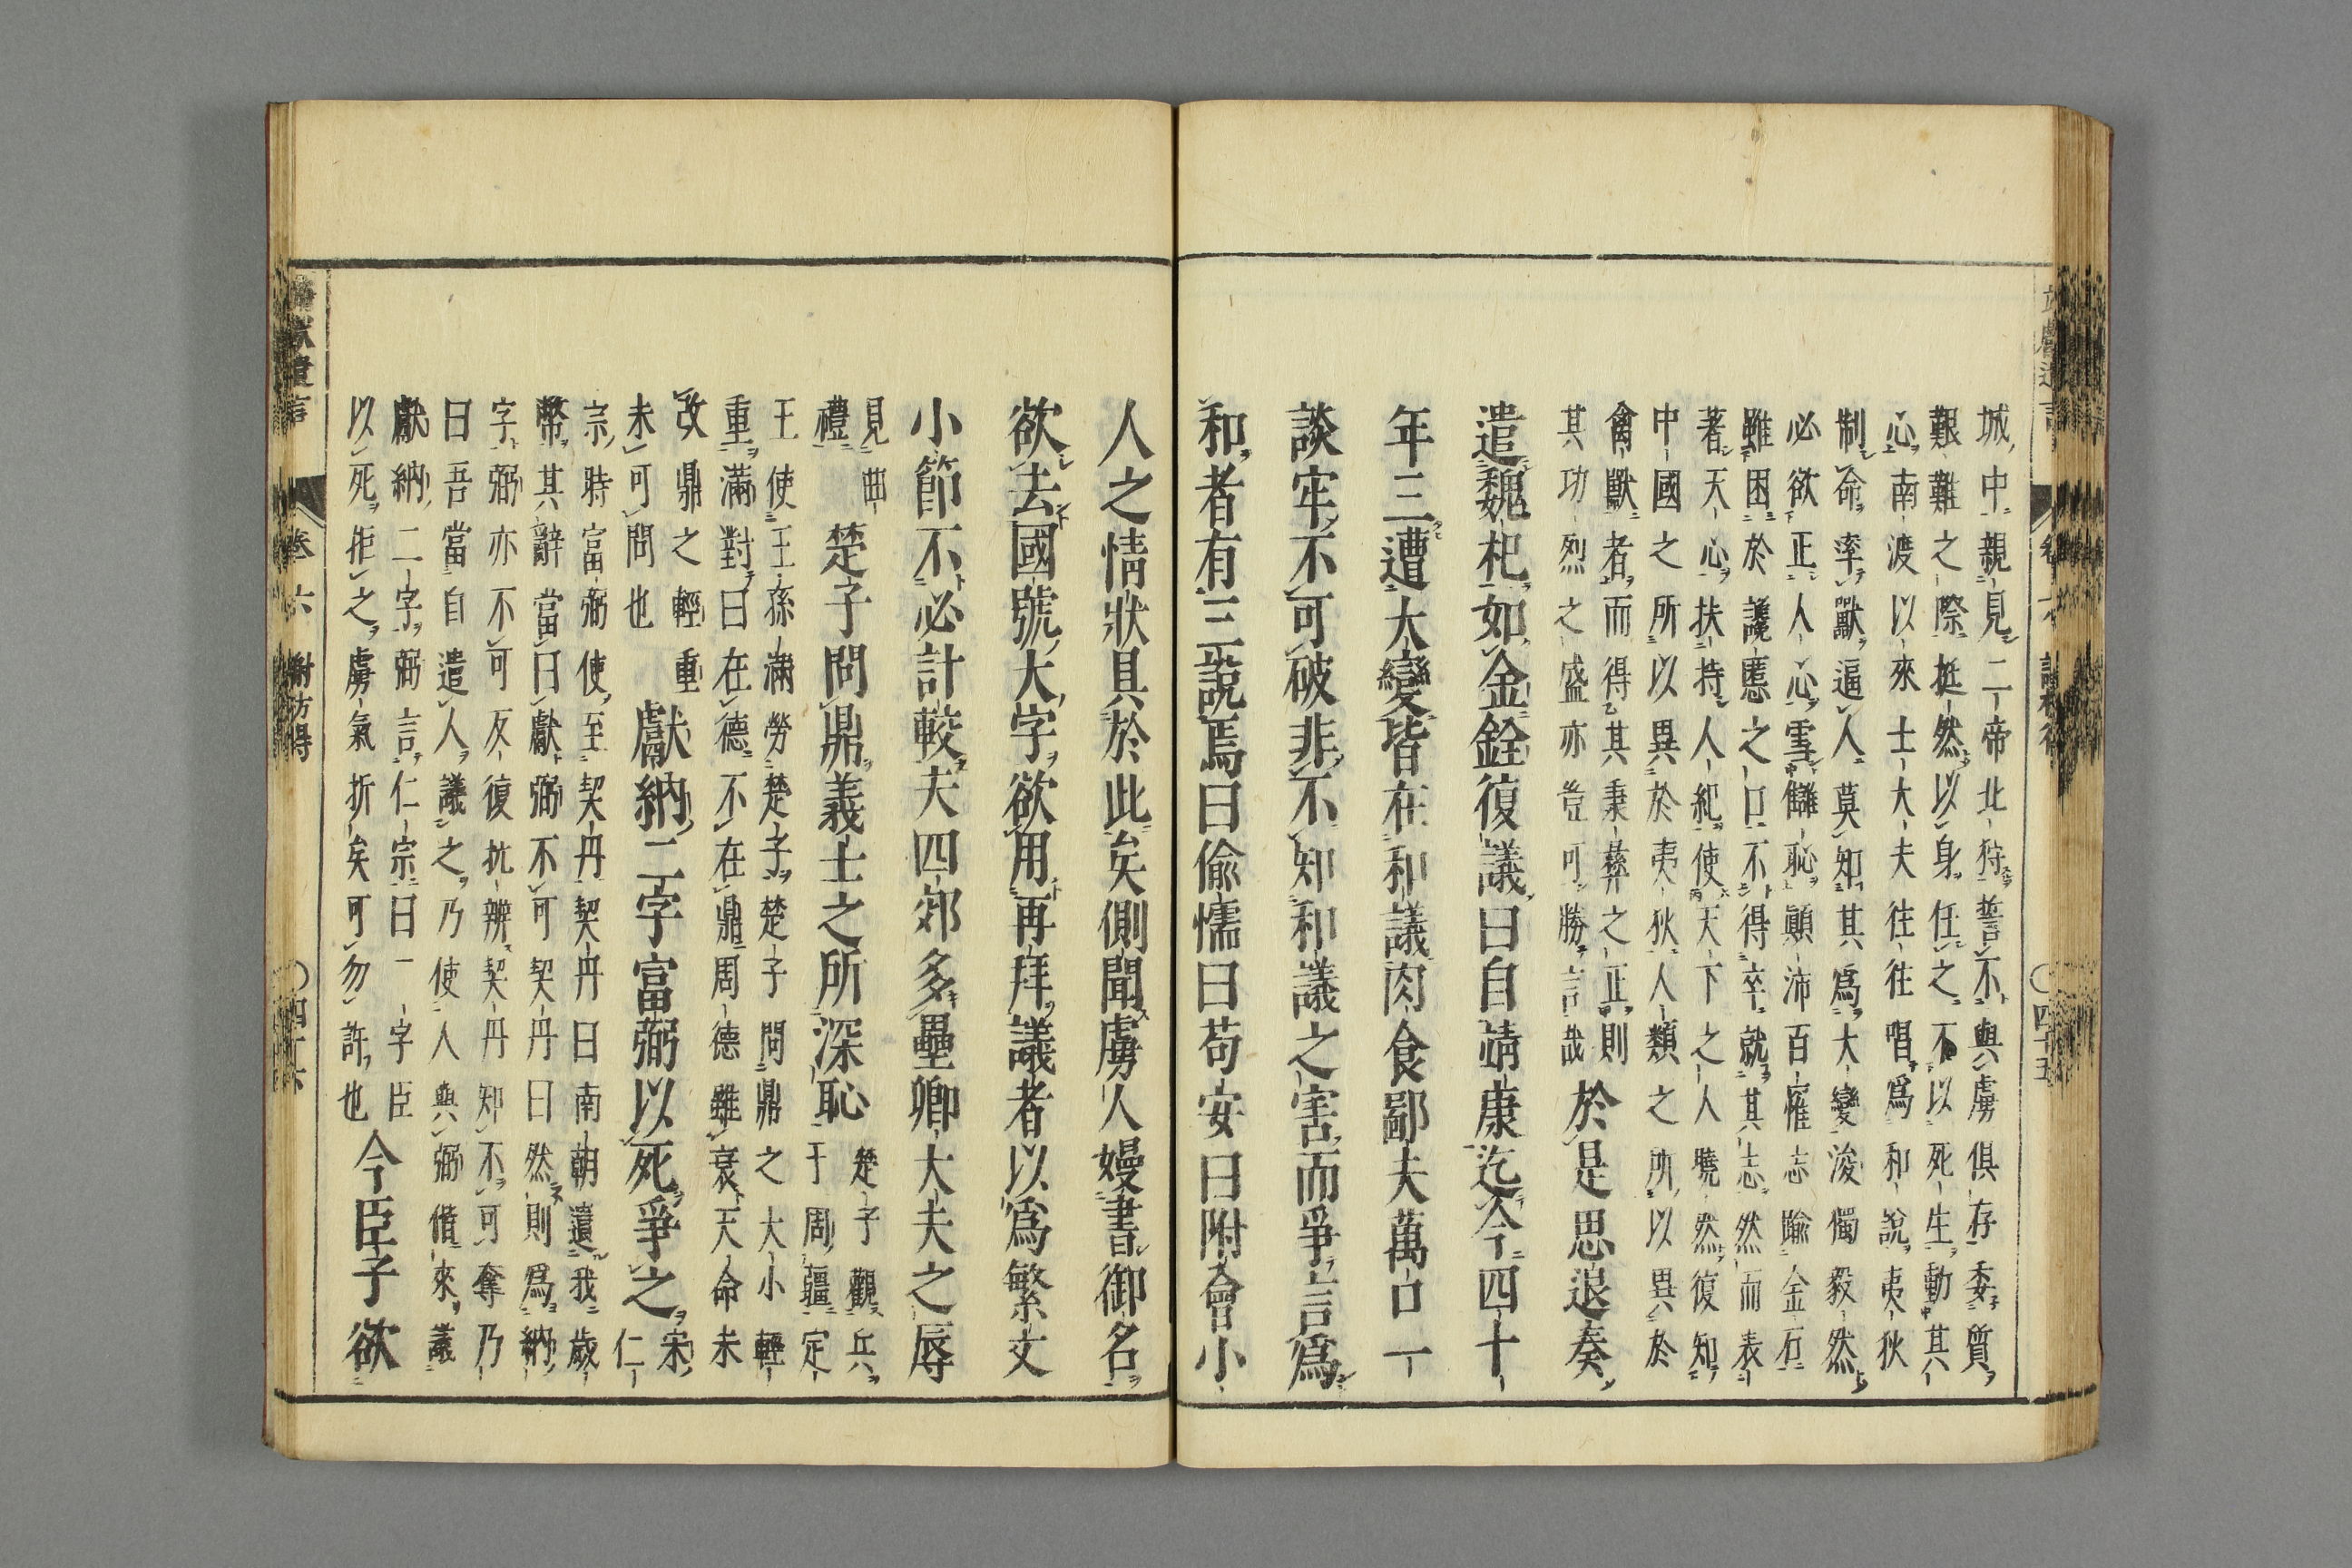 城中親見二帝北狩誓不與虜俱存委質
艱難之際挺然以身任之不以死生動其
心南渡以來士大夫往往唱爲和說夷狄
制命率獸逼人莫知其爲大變浚獨毅然
必欲正人心雪讎恥顚沛百罹志踰金石
雖困於讒慝之口不得卒就其志然而表
著天心扶持人紀使天下之人曉然復知
中國之所以異於夷狄人類之所以異於
禽獸者而得其秉彝之正則
其功烈之盛亦豈可勝言哉
於是思退奏
遣魏杞如金銓復議曰自靖康迄今四十
年三遭大變皆在和議肉食鄙夫萬口一
談牢不可破非不知和議之害而爭言爲
和者有三說焉曰偸懦曰苟安曰附會小
人之情狀具於此矣側聞虜人嫚書御名
欲去國號大字欲用再拜議者以爲繁文
小節不必計較夫四郊多壘卿大夫之辱
見曲
禮
楚子問鼎義士之所深恥
楚子觀兵
于周疆定
王使王孫滿勞楚子楚子問鼎之大小輕
重滿對曰在德不在鼎周德雖衰天命未
改鼎之輕重
未可問也
獻納二字富弼以死爭之
宋
仁
宗時富弼使至契丹契丹曰南朝遺我歲
幣其辭當曰獻弼不可契丹曰然則爲納
字弼亦不可反復抗辨契丹知不可奪乃
曰吾當自遣人議之乃使人與弼偕來議
獻納二字弼言仁宗曰一字臣
以死拒之虜氣折矣可勿許也
今臣子欲
卷六
謝枋得
〇四十五
遺言
卷六
謝枋得
〇四十六